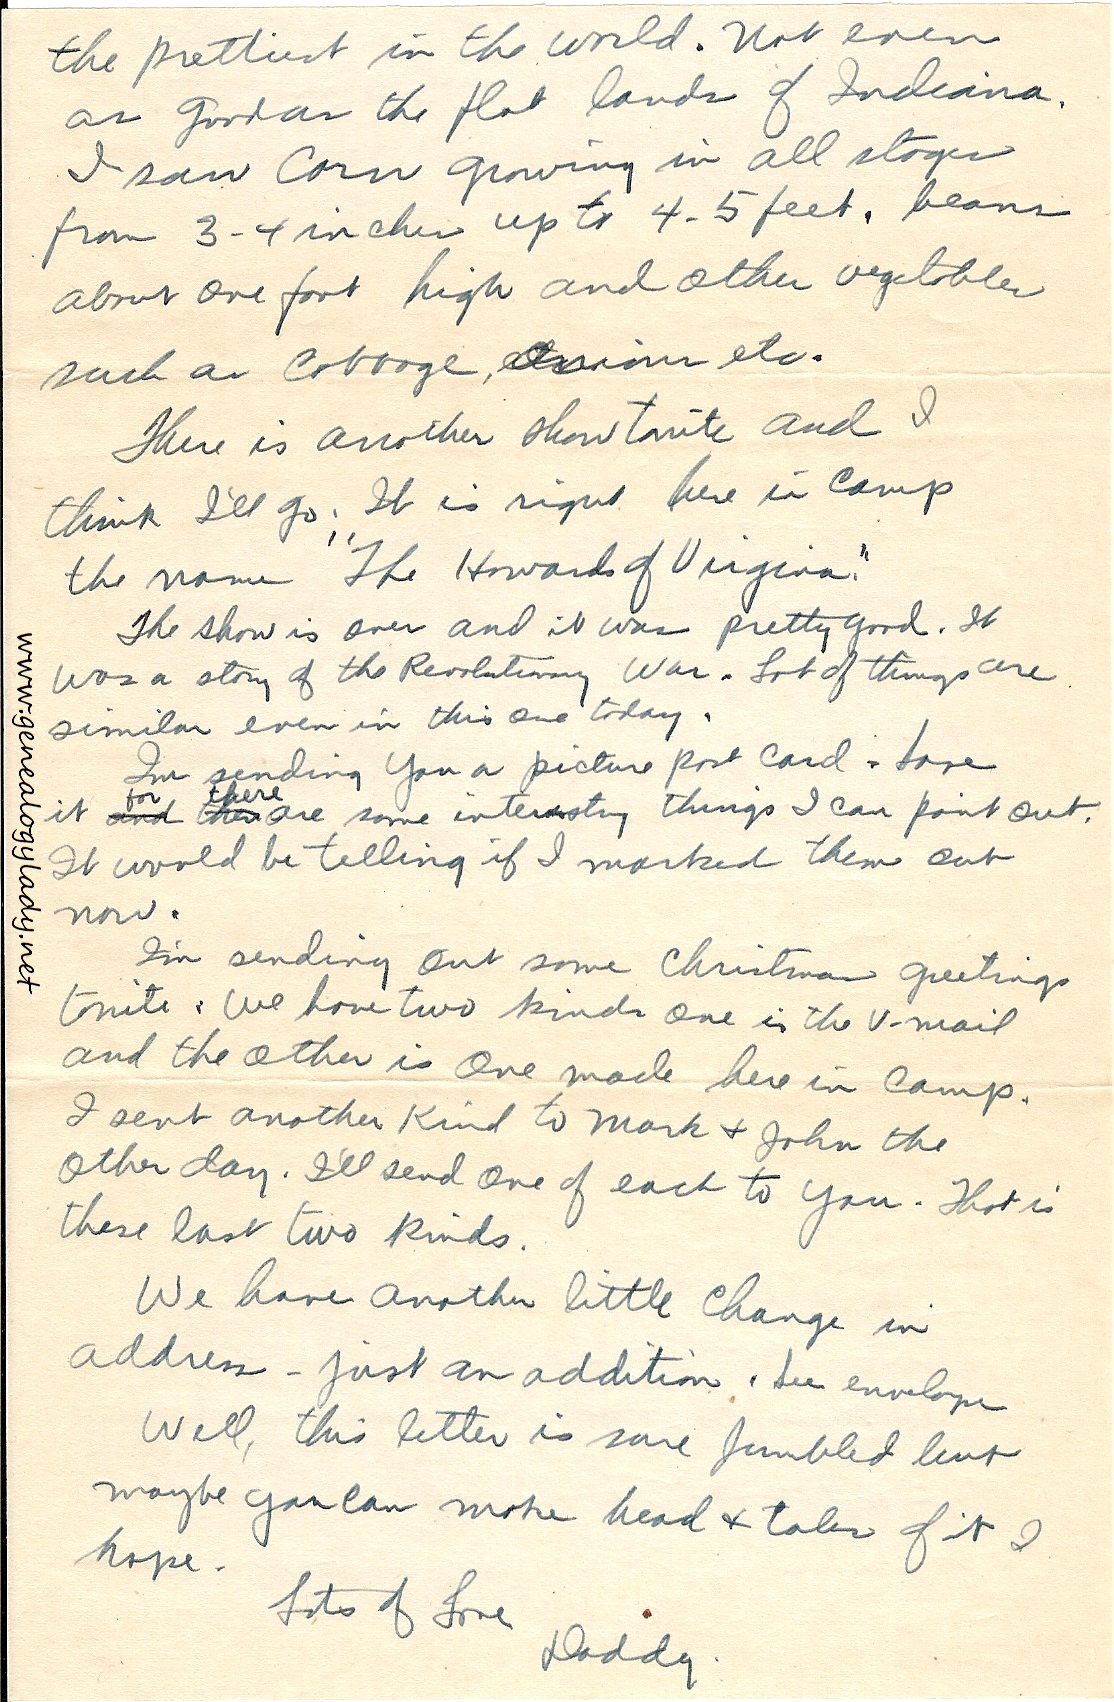 the prettiest in the world. Not even
as good as the flat lands of Indiana.
I saw Corn growing in all stages
from 3-4 inches up to 4-5 feet. beans
about one foot high and other vegetables
such as Cabbage, onions etc.
There is another show tonite and I
think I'll go. It is right here in camp
the name "The Howards of Virginia."
The show is over and it was pretty good. It
was a story of the Revolutionary War. Lot of things are
similar even in this one today.
I'm sending you a picture post card. Save
it and for then there are some interesting things I can point out.
It would be telling if I marked them out
now.
I'm sending out some Christmas greetings
tonite. We have two kinds one is the V-mail
and the other is one made here in camp.
I sent another kind to Mark & John the
other day. I'll send one of each to you. That is
these last two kinds.
We have another little change in
address - just an addition. See envelope
Well, this letter is sure jumbled but
maybe you can make head & tales of it I
hope.
Lots of Love
Daddy.
www.genealogylady.net